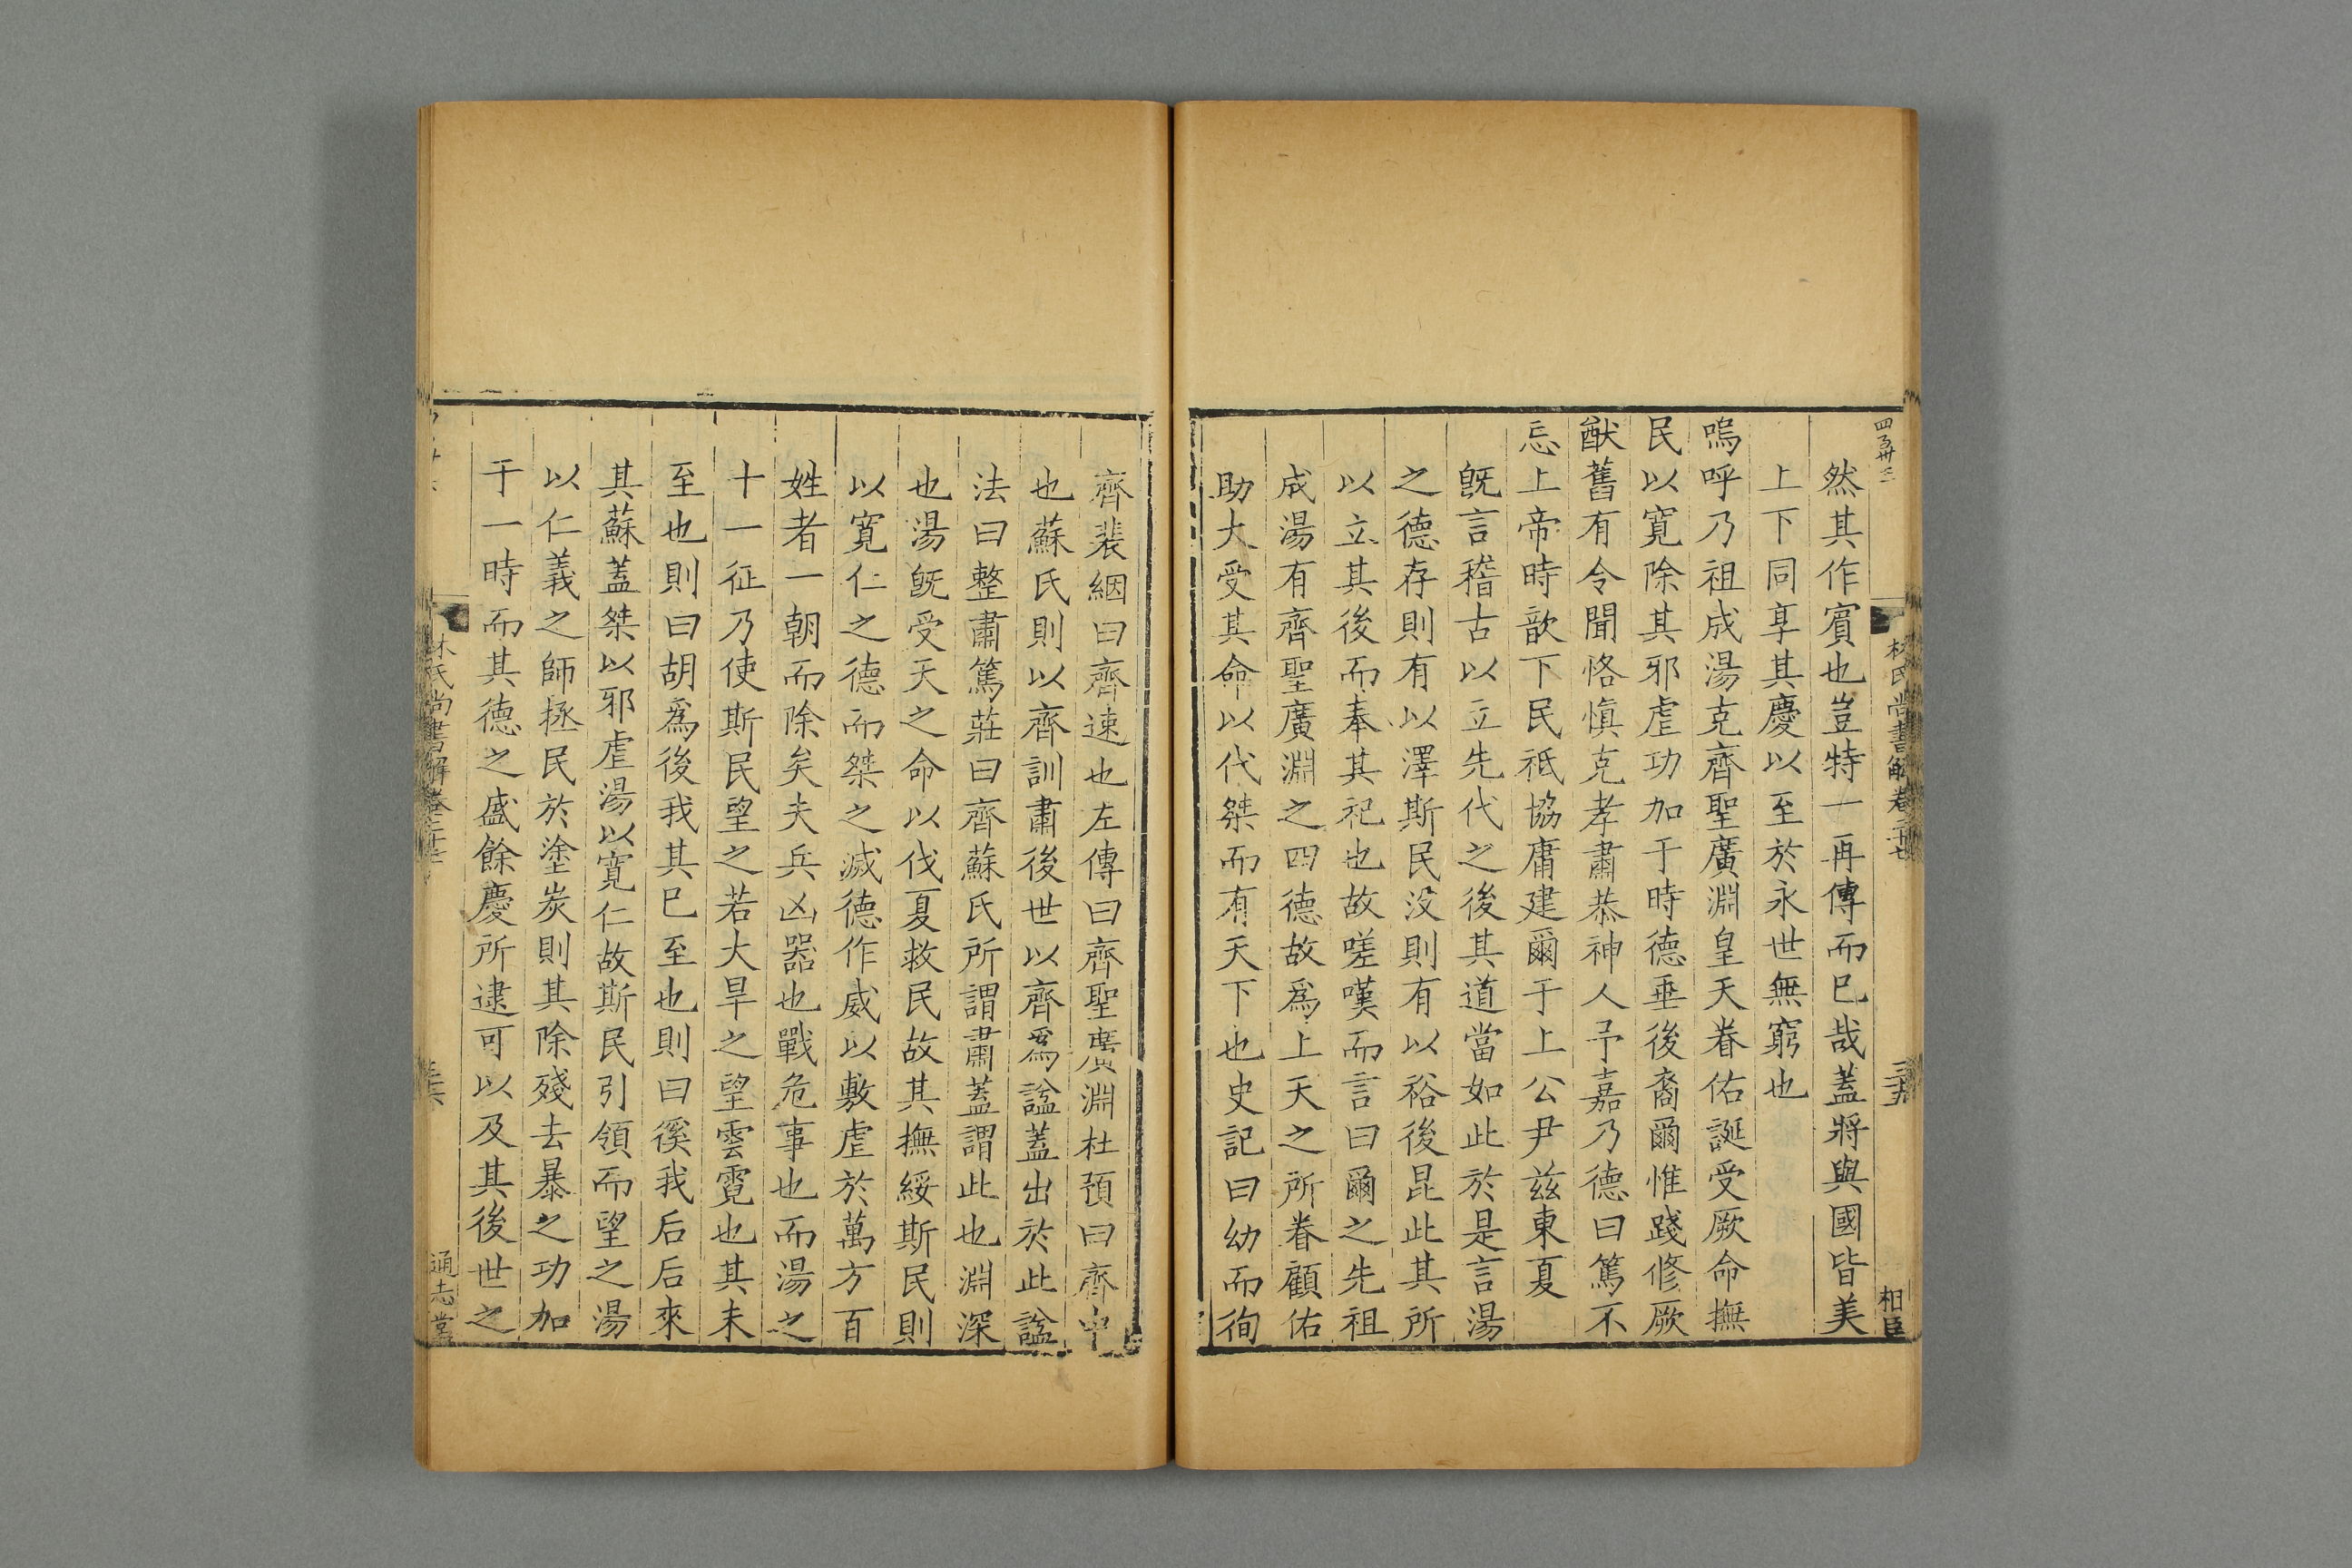 四百卅三
林氏尚書解卷二十七
三十五
相臣
然其作賓也豈特一再傳而已哉蓋將與國皆美
上下同享其慶以至於永世無窮也
嗚呼乃祖成湯克齊聖廣淵皇天眷佑誕受厥命撫
民以寛除其邪虐功加于時德垂後裔爾惟踐修厥
猷舊有令聞恪愼克孝肅恭神人予嘉乃德曰篤不
忘上帝時歆下民祗協庸建爾于上公尹兹東夏
旣言稽古以立先代之後其道當如此於是言湯
之德存則有以澤斯民没則有以裕後昆此其所
以立其後而奉其祀也故嗟嘆而言曰爾之先祖
成湯有齊聖廣淵之四德故爲上天之所眷顧佑
助大受其命以代桀而有天下也史記曰幼而徇
齊裴絪曰齊速也左傳曰齊聖廣淵杜預曰齊中
也蘇氏則以齊訓肅後世以齊爲諡蓋出於此諡
法曰整肅篤莊曰齊蘇氏所謂肅蓋謂此也淵深
也湯旣受天之命以伐夏救民故其撫綏斯民則
以寛仁之德而桀之滅德作威以敷虐於萬方百
姓者一朝而除矣夫兵凶器也戰危事也而湯之
十一征乃使斯民望之若大旱之望雲霓也其未
至也則曰胡爲後我其已至也則曰徯我后后來
其蘇蓋桀以邪虐湯以寛仁故斯民引領而望之湯
以仁義之師拯民於塗炭則其除殘去暴之功加
于一時而其德之盛餘慶所逮可以及其後世之
林氏尚書解卷二十七
三十六
通志堂